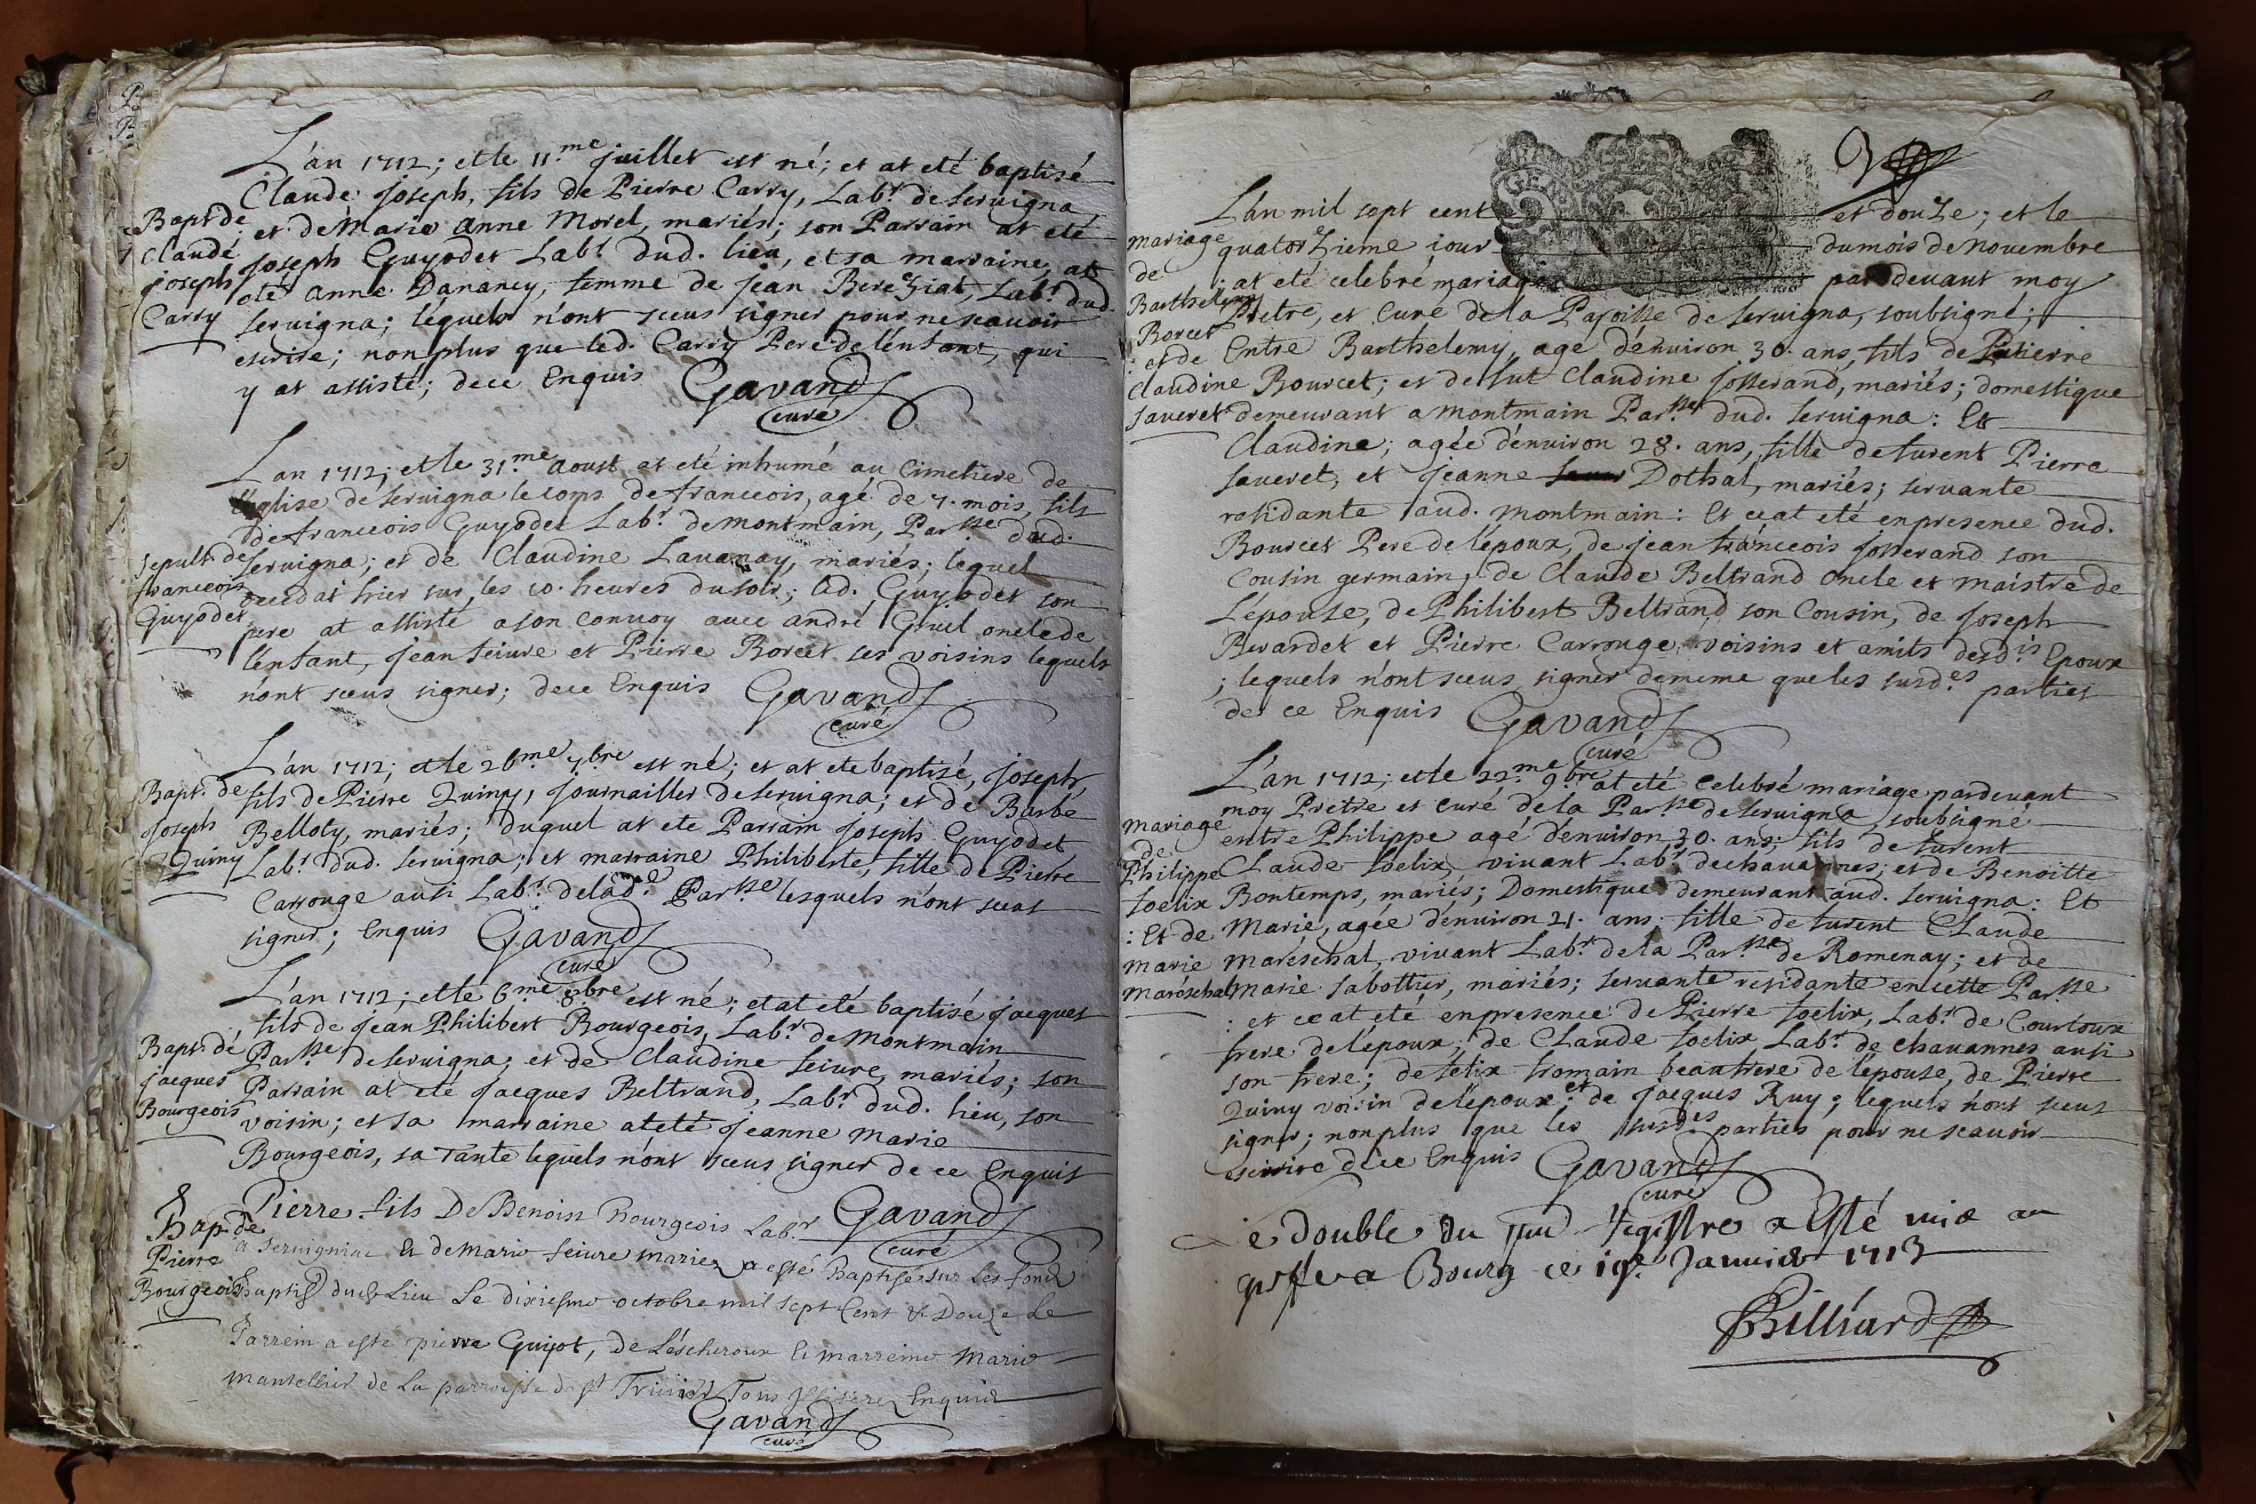 L'an 1712; et le 11.me juillet est né; et at eté baptisé
Claude Joseph, fils de Pierre Carry, Lab.r de Servigna
Bapt. de
Claude
Joseph
Carry
et de Marie Anne Morel, mariés; son Parrain at eté
Joseph Guyodet Lab.r dud. lieu, et sa marraine at
eté Anne Danancy, femme de Jean Bereziat, Lab.r dud.
Servigna; léquels n'ont sceus signer pour ne scavoir
escrire; non plus que led. Carry Pere de l'enfant, qui
y at assisté; de ce Enquis Gavand
curé
L'an 1712; et le 31.me Aoust at eté inhumé au Cimetiere de
l'Eglise de Servigna le corps de franceois, agé de 7. mois, fils
de franceois Guyodet Lab.r de Montmain, Par.sse dud.
Sepult. de
franceois
Guyodet
Servigna; et de Claudine Lavanay, mariés; lequel
decedat hier sur les 10. heures du soir; led. Guyodet son
pere at assisté a son convoy avec andré Gruel oncle de
l'enfant, Jean feivre et Pierre Borcet ses voisins lequels
n'ont sceus signer; de ce Enquis Gavand
curé
L'an 1712; et le 26.me 7.bre est né; et at ete baptisé, Joseph,
Bapt. de
Joseph
Quiny
fils de Pierre Quiny, Journaillier de Servigna; et de Barbe
Belloty, mariés; duquel at ete Parrain Joseph Guyodet
Lab.r dud. Servigna; et marraine Philiberte, fille de Pierre
Carrouge ausi Lab.r de lad.e Par.sse lesquels n'ont sceus
signer; Enquis Gavand
curé
L'an 1712; et le 6.me 8.bre est né; et at eté baptisé Jacques
fils de Jean Philibert Bourgeois, Lab.r de Montmain
Bapt. de
Jacques
Bourgeois
Par.sse de Servigna; et de Claudine feivre, mariés; son
Parrain at eté Jacques Beltrand, Lab.r dud. lieu, son
voisin; et sa marraine at eté Jeanne Marie
Bourgeois, sa Tante lequels n'ont sceus signer de ce Enquis
Gavand
curé
Bap. de
Pierre
Bourgeois
Pierre fils De Benoist Bourgeois Lab.r
a Servigniat Et de Marie feivre mariez a esté Baptisé sur les fonds
Baptis. dud. Lieu Le dixiesme octobre mil sept Cent & Douze Le
Parrein a esté pierre Guijot, de Lescheroux la marreine Marie
mantellier de La parroisse de St Trivier Tous Illiterez Enquis
Gavand
curé
L'an mil sept cent et douze; et le
mariage
de
Barthelemy
Borcet
: et de
Claudine
Saveret
quatorzieme jour du mois de Novembre
; at eté celebré mariage par devant moy
Pretre, et Curé de la Paroisse de Servigna, soubsigné;
Entre Barthelemy, agé dénviron 30. ans, fils de Pierre
Bourcet; et de fut Claudine Josserand, mariés; domestique
demeurant a Montmain Par.sse dud. Servigna: Et
Claudine; agée dénviron 28. ans, fille de furent Pierre
Saveret, et Jeanne Dothal, mariés; servante
residante aud. Montmain: Et ce at eté en presence dud.
Bourcet Pere de l'époux, de Jean franceois Josserand son
Cousin germain, de Claude Beltrand oncle et maistre de
l'épouse, de Philibert Beltrand son Cousin, de Joseph
Berardet et Pierre Carrouge voisins et amits desd.is Epoux
; lequels n'ont sceus signer de meme que les susd.es parties
de ce Enquis Gavand
curé
L'an 1712; et le 22.me 9.bre at eté Celebré mariage pardevant
moy Pretre et curé de la Par.sse de Servigna soubsigné
mariage
de
Philippe
foelix
: Et de
Marie
Maréschal
entre Philippe agé dénviron 30. ans: fils de furent
Claude foelix, vivant Lab.r de chavannes; et de Benoitte
Bontemps, mariés; Domestique demeurant aud. Servigna: Et
Marie, agée dénviron 21. ans: fille de furent Claude
Maréschal, vivant Lab.r de la Par.sse de Romenay; et de
Marie Sabottier, mariés; servante residante en cette Par.sse
: et ce at eté en presence de Pierre foelix, Lab.r de Courtoux
frere de l'époux; de Claude foelix Lab.r de chavannes ausi
son frere; de félix fromain beaufrere de l'épouse, de Pierre
Quiny voisin de l'époux; et de Jacques Ruy; lequels n'ont sceus
signer; non plus que les susd.es parties pour ne scavoir
escrire de ce Enquis Gavand
curé
Le Double du pnt Registre a Esté mis au
greffe a Bourg ce 19e. Janvier 1713
Billiard